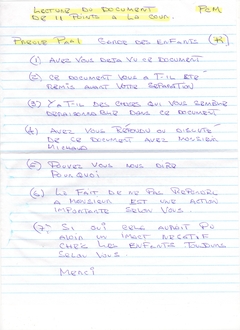 LECTURE DU DOCUMENT PCM
DE 11 POINTS A LA COUR.
PAROLE PAR 1 GARDE DES ENFANTS (R)
(1) AVEZ VOUS DEJA VU CE DOCUMENT
(2) CE DOCUMENT VOUS A T IL ETE
REMIS AVANT VOTRE SEPARATION
(3) Y A T IL DES CHOSES QUI VOUS SEMBLE
DERAISONNABLE DANS CE DOCUMENT
(4) AVEZ VOUS REPONDU OU DISCUTE
DE CE DOCUMENT AVEC MONSIEUR
MICHAUD
(5) POUVEZ VOUS NOUS DIRE
POURQUOI
(6) LE FAIT DE NE PAS REPONDRE
A MONSIEUR EST UNE ACTION
IMPORTANTE SELON VOUS.
(7) SI OUI CELA AURAIT PU
AVOIR UN IMPACT NEGATIF
CHEZ LES ENFANTS TOUJOURS
SELON VOUS.
MERCI